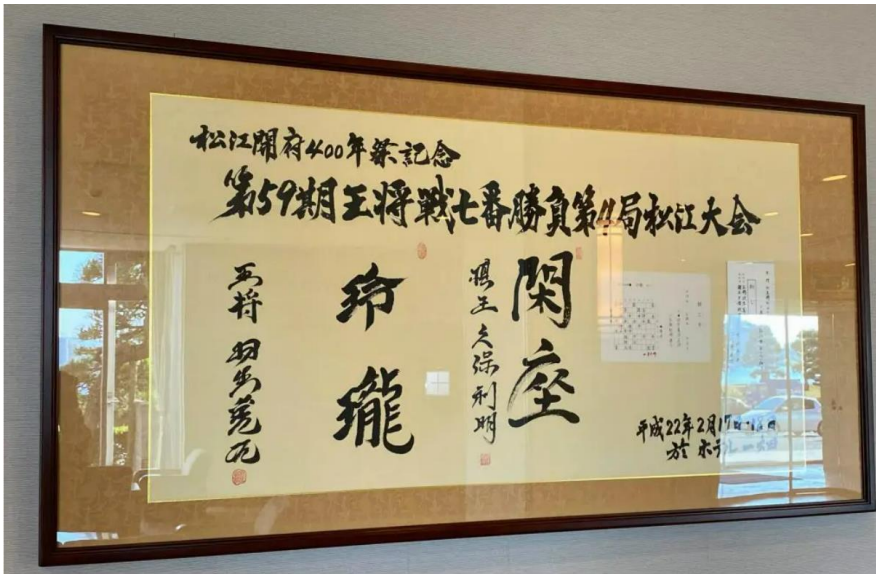 松江開府400年祭記念
第59期王将戦七番勝負第4局松江大会
閑座
棋王 久保利明
玲瓏
王将 羽生善治
平成22年2月17日・18日
於 ホテル一畑